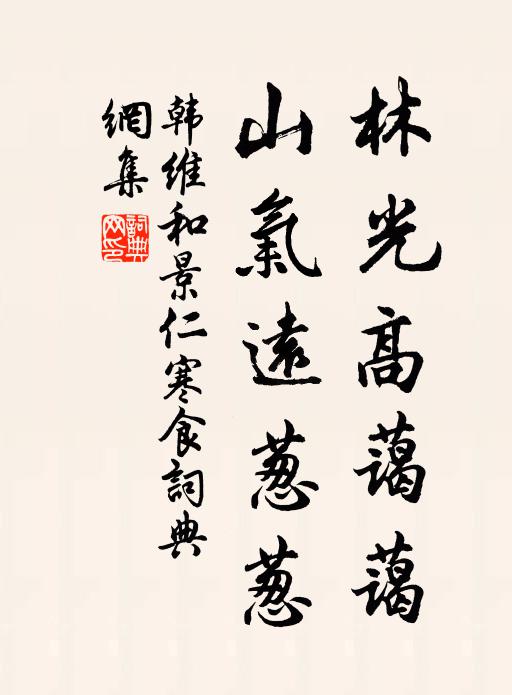 林光高藹藹
山氣遠葱葱
韩維和景仁寒食詞典
網集
詞典
网印